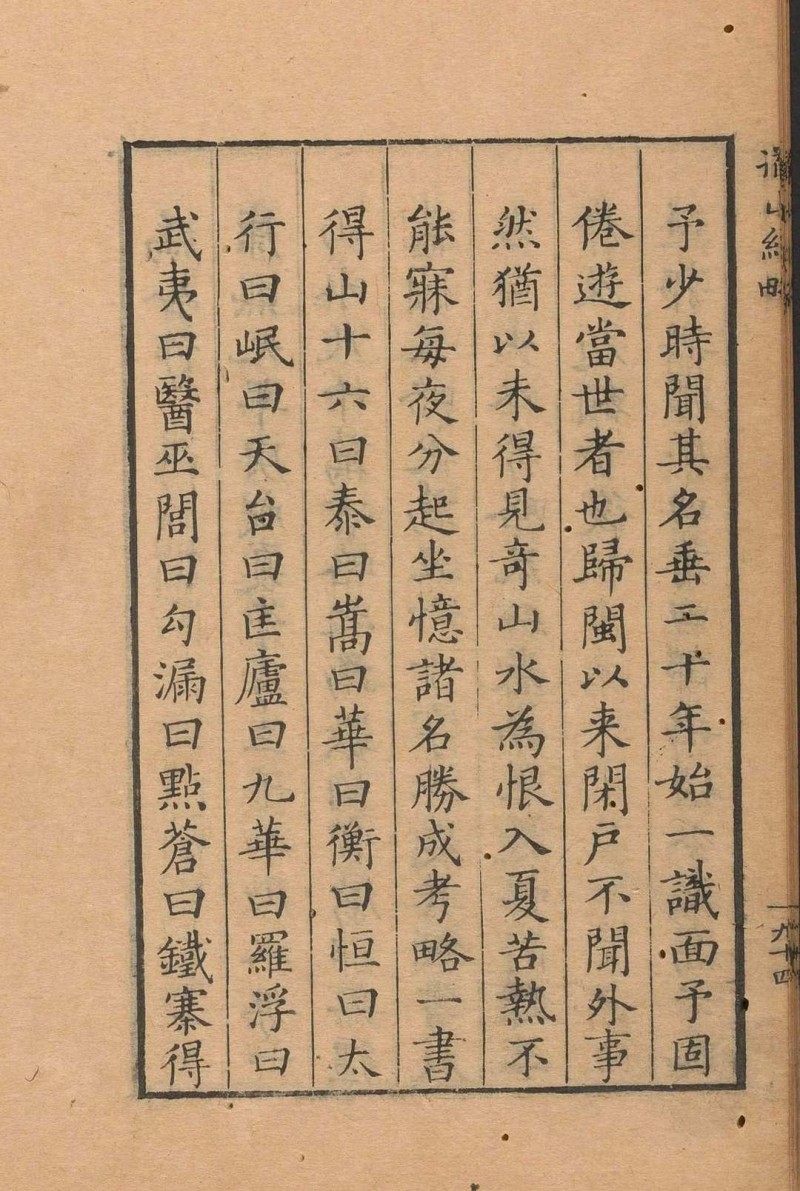 予少時聞其名垂二十年始一識面予固
倦遊當世者也歸閩以来閑戸不聞外事
然猶以未得見奇山水為恨入夏苦熱不
能寐每夜分起坐憶諸名勝成考略一書
得山十六曰泰曰嵩曰華曰衡曰恒曰太
行曰岷曰天台曰匡廬曰九華曰羅浮曰
武夷曰醫巫閭曰勾漏曰點蒼曰鐵寨得
九十四